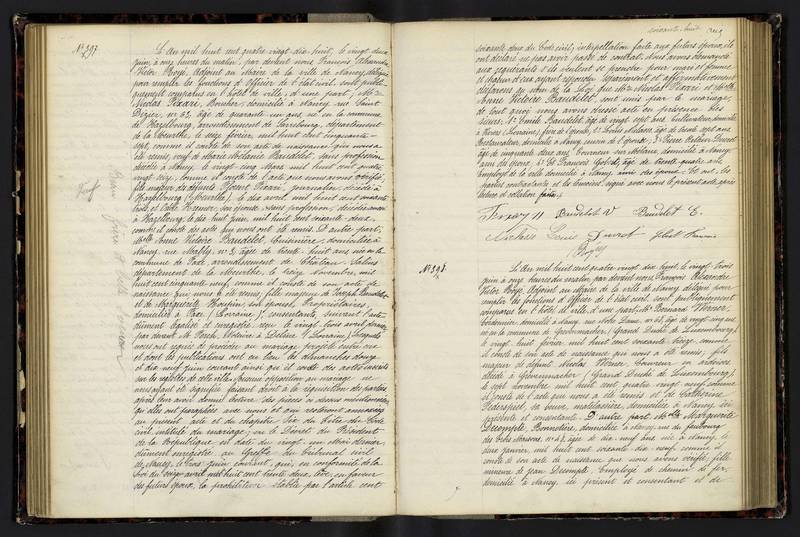 N° 297.
L'An mil huit cent quatre vingt dix huit, le vingt deux
juin, à onze heures du matin, par devant nous François Alexandre
Victor Boys, Adjoint au Maire de la ville de Nancy, délégué
pour remplir les fonctions d'Officier de l'état civil, sont publi-
quement comparus en l'hôtel de ville, d'une part, Mr
Nicolas Pierri, Boucher, domicilié à Nancy, rue Saint
Dizier, n° 62, âgé de quarante un ans, né en la commune
de Hazelbourg, arrondissement de Sarrebourg, département
de la Meurthe, le onze février, mil huit cent cinquante-
sept, comme il conste de son acte de naissance qui nous a
été remis, veuf de Marie
décédée à Nancy, le vingt cinq Mars mil huit cent quatre
vingt onze, comme il conste de l'acte que nous avons vérifié,
fils majeur de défunts journalier, décédé à
Hazelbourg (Meurthe), le dix avril, mil huit cent soixante
trois, et son épouse, sans profession, décédée aussi
à Hazelbourg, le dix huit juin, mil huit cent soixante-deux,
comme il conste des actes qui nous ont été remis. D'autre part,
Melle Anne Victoire Baudelet, Cuisinière, domiciliée à
Nancy, rue Mably, n° 3, âgée de trente-huit ans, née en la
commune de arrondissement de Château-Salins,
département de la Meurthe, le treize Novembre, mil
huit cent cinquante neuf, comme il conste de son acte de
naissance qui nous a été remis, fille majeure de Joseph Baudelet
et de Marguerite son épouse, Propriétaires,
domiciliés à (Lorraine), consentants, suivant l'acte
dûment légalisé et enregistré, reçu le vingt trois avril dernier
par devant Me Notaire à Delme (Lorraine); Lesquels
nous ont requis de procéder au mariage projeté entre eux
et dont les publications ont eu lieu les dimanches douze
et dix neuf juin courant ainsi qu'il conste des actes inscrits
sur les registres de cette ville. Aucune opposition au mariage ne
nous ayant été signifiée, faisant droit à la réquisition des parties,
après leur avoir donné lecture des pièces ci dessus mentionnées,
qu'elles ont paraphées avec nous et qui resteront annexées
au présent acte et du chapitre Six du Titre du Code
civil, intitulé du mariage; vu le Décret du Président
de la République en date du vingt un Mai dernier,
dûment enregistré au Greffe du Tribunal civil
de Nancy, le juin courant, qui, en conformité de la
loi du seize avril mil huit cent trente deux, lève, en faveur
des futurs époux, la prohibition établie par l'article cent
soixante-huit
soixante deux du Code civil; interpellation faite aux futurs époux, ils
ont déclaré ne pas avoir passé de contrat. Nous avons demandé
aux requérants s'ils veulent se prendre pour mari et femme
et chacun d'eux ayant répondu séparément et affirmativement
déclarons au nom de la Loi, que Mr Nicolas Pierri et Melle
Anne Victoire Baudelet, sont unis par le mariage,
de tout quoi nous avons dressé acte en présence des
sieurs: 1° Emile Baudelet, âgé de vingt sept ans, Cultivateur, domicilié
à (Lorraine), frère de l'épouse, 2° Louis âgé de trente sept ans
Restaurateur, domicilié à Nancy, cousin de l'épouse, 3° Pierre
âgé de cinquante deux ans, Tourneur sur Métaux, domicilié à Nancy
ami des époux, 4° Et François Gobert, âgé de trente quatre ans
Employé de la ville, domicilié à Nancy, ami des époux; Et ont, les
parties contractantes et les témoins, signé avec nous le présent acte, après
lecture et collation faites.
Baudelet V Baudelet E.
Louis Gobert François
Boys
N° 298.
L'An mil huit cent quatre vingt dix huit, le vingt trois
juin à onze heures du matin, par devant nous François Alexandre
Victor Boys, Adjoint au Maire de la ville de Nancy, délégué pour
remplir les fonctions d'Officier de l'état civil, sont publiquement
comparus en l'hôtel de ville, d'une part, Mr Bernard Werner,
Cordonnier, domicilié à Nancy, rue âgé de vingt cinq ans,
né en la commune de Grevenmacher (Grand Duché de Luxembourg),
le vingt huit février mil huit cent soixante treize, comme
il conste de son acte de naissance qui nous a été remis, fils
majeur de défunt Nicolas Werner, Couvreur en ardoises,
décédé à Grevenmacher (Grand Duché de Luxembourg),
le sept novembre mil huit cent quatre vingt neuf, comme
il conste de l'acte que nous a été remis et de Catherine
Federspiel, sa veuve, matelassière, domiciliée à Nancy, ici
présente et consentante. D'autre part, Melle Marguerite
Decompte, Bonnetière, domiciliée à Nancy, rue du faubourg
des Trois Maisons, n° 47, âgée de dix-neuf ans, née à Nancy, le
deux janvier, mil huit cent soixante dix-neuf, comme il
conste de son acte de naissance que nous avons vérifié, fille
mineure de Jean Decompte, Employé de chemin de fer,
domicilié à Nancy, ici présent et consentant et de